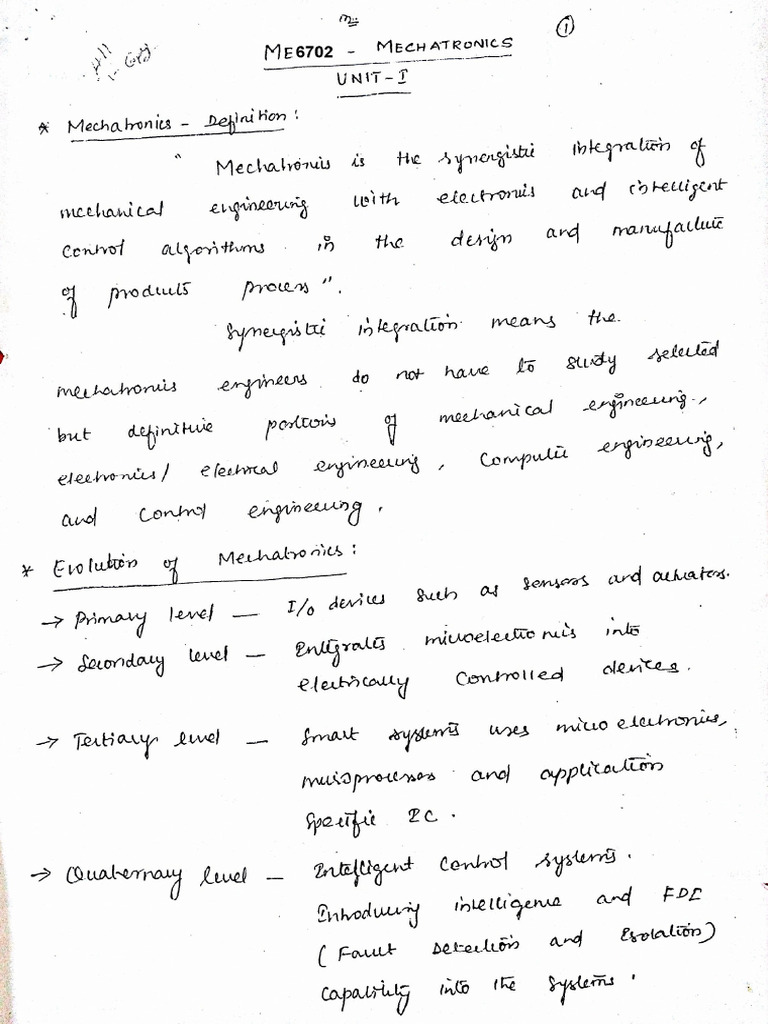 ①
ME6702 - MECHATRONICS
UNIT-I
* Mechatronics - Definition:
" Mechatronics is the synergistic integration of
mechanical engineering with electronics and intelligent
control algorithms in the design and manufacture
of products process".
Synergistic integration means the
mechatronics engineers do not have to study selected
but definitive portions of mechanical engineering,
electronics/ electrical engineering, Computer engineering,
and control engineering.
* Evolution of Mechatronics:
→ Primary level — I/o devices such as sensors and actuators.
→ Secondary level — Integrates microelectronics into
electrically controlled devices.
→ Tertiary level — Smart systems uses micro electronics,
microprocesses and application
specific IC.
→ Quaternary level — Intelligent control systems.
Introducing intelligence and FDI
(Fault Detection and Isolation)
capability into the systems.